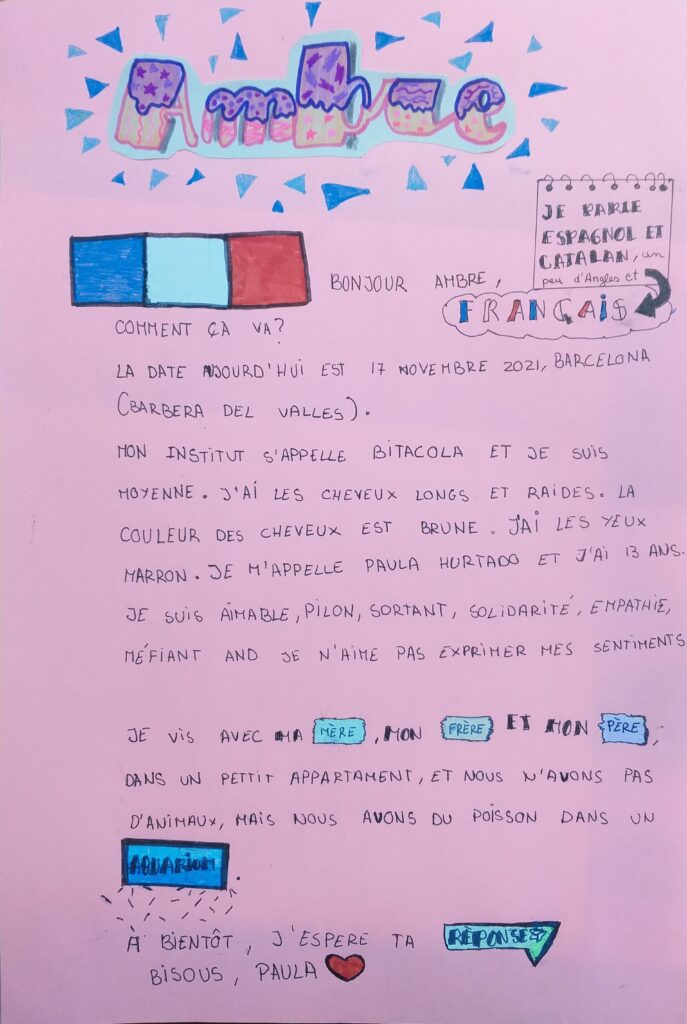 Ambre
JE PARLE
ESPAGNOL ET
CATALAN, un
peu d'Angles et
FRANÇAIS
BONJOUR AMBRE,
COMMENT ÇA VA?
LA DATE AUJOURD'HUI EST 17 NOVEMBRE 2021, BARCELONA
(BARBERA DEL VALLES).
MON INSTITUT S'APPELLE BITACOLA ET JE SUIS
MOYENNE. J'AÍ LES CHEVEUX LONGS ET RAIDES. LA
COULEUR DES CHEVEUX EST BRUNE. J'AI LES YEUX
MARRON. JE M'APPELLE PAULA HURTADO ET J'AI 13 ANS.
JE SUIS AIMABLE, PILON, SORTANT, SOLIDARITÉ, EMPATHIE,
MÉFIANT AND JE N'AIME PAS EXPRIMER MES SENTIMENTS
JE VIS AVEC MA MÈRE, MON FRÈRE ET MON PÈRE,
DANS UN PETTIT APPARTAMENT, ET NOUS N'AVONS PAS
D'ANIMAUX, MAIS NOUS AVONS DU POISSON DANS UN
AQUARIUM.
À BIENTÔT, J'ESPERE TA RÈPONSE
BISOUS, PAULA